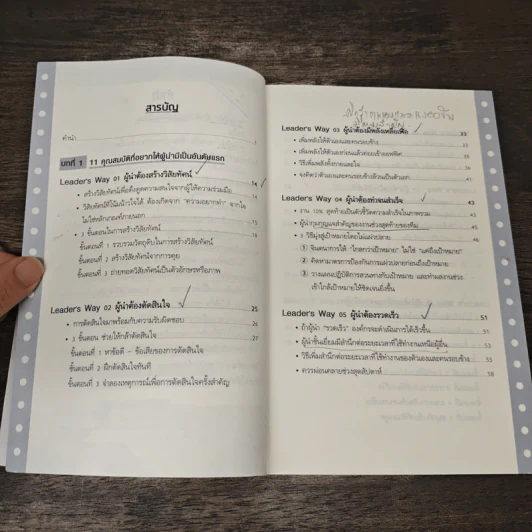 สารบัญ
คำนำ
บทที่ 1 11 คุณสมบัติที่อยากให้ผู้นำมีเป็นอันดับแรก
Leader's Way 01 ผู้นำต้องสร้างวิสัยทัศน์ 14
• สร้างวิสัยทัศน์เพื่อดึงดูดความสนใจจากผู้ให้ความร่วมมือ 14
• วิสัยทัศน์ที่โน้มน้าวใจได้ ต้องเกิดจาก "ความอยากทำ" จากใจ
ไม่ใช่หลักเกณฑ์ภายนอก 15
• 3 ขั้นตอนในการสร้างวิสัยทัศน์ 18
ขั้นตอนที่ 1 รวบรวมวัตถุดิบในการสร้างวิสัยทัศน์
ขั้นตอนที่ 2 สร้างวิสัยทัศน์จากการคุย
ขั้นตอนที่ 3 ถ่ายทอดวิสัยทัศน์เป็นตัวอักษรหรือภาพ
Leader's Way 02 ผู้นำต้องตัดสินใจ 25
• การตัดสินใจมาพร้อมกับความรับผิดชอบ 26
• 3 ขั้นตอน ช่วยให้กล้าตัดสินใจ 27
ขั้นตอนที่ 1 หาข้อดี - ข้อเสียของการตัดสินใจ
ขั้นตอนที่ 2 ฝึกตัดสินใจทันที
ขั้นตอนที่ 3 จำลองเหตุการณ์เพื่อการตัดสินใจครั้งสำคัญ
Leader's Way 03 ผู้นำต้องมีพลังเหลือเฟือ 33
• เพิ่มพลังให้ตัวเองและคนรอบข้าง
• เพิ่มพลังให้ตัวเองก่อนแล้ว
• วิธีเพิ่มพลังทั้งกายและใจ
• จงคิดว่าตัวเองและคนรอบข้างล้วนเป็นตัวเอก
Leader's Way 04 ผู้นำต้องทำจนสำเร็จ 43
• งาน 10% สุดท้ายเป็นตัวชี้วัดความสำเร็จในภาพรวม 43
• ผู้นำกุมกุญแจสำคัญของงานช่วงสุดท้ายของทีม 45
• 3 วิธีมุ่งสู่เป้าหมายโดยไม่แผ่วปลาย 46
① จินตนาการให้ "ไกลกว่าเป้าหมาย" ไม่ใช่ "แค่ถึงเป้าหมาย"
② คิดหามาตรการป้องกันการแผ่วปลายก่อนถึงเป้าหมาย
③ วางแผนปฏิบัติการสวนทางกับเป้าหมาย และทำแผนงานช่วง
เข้าใกล้เป้าหมายให้ชัดเจนยิ่งขึ้น
Leader's Way 05 ผู้นำต้องรวดเร็ว 51
• ถ้าผู้นำ "รวดเร็ว" องค์กรจะดำเนินการได้เร็วขึ้น 51
• ผู้นำชั้นเยี่ยมมีสำนึกต่อระยะเวลาที่ใช้ทำงานเหนือผู้อื่น 53
• วิธีเพิ่มสำนึกต่อระยะเวลาที่ใช้ทำงานของตัวเองและคนรอบข้าง 55
• ควรผ่อนคลายช่วงสุดสัปดาห์ 58